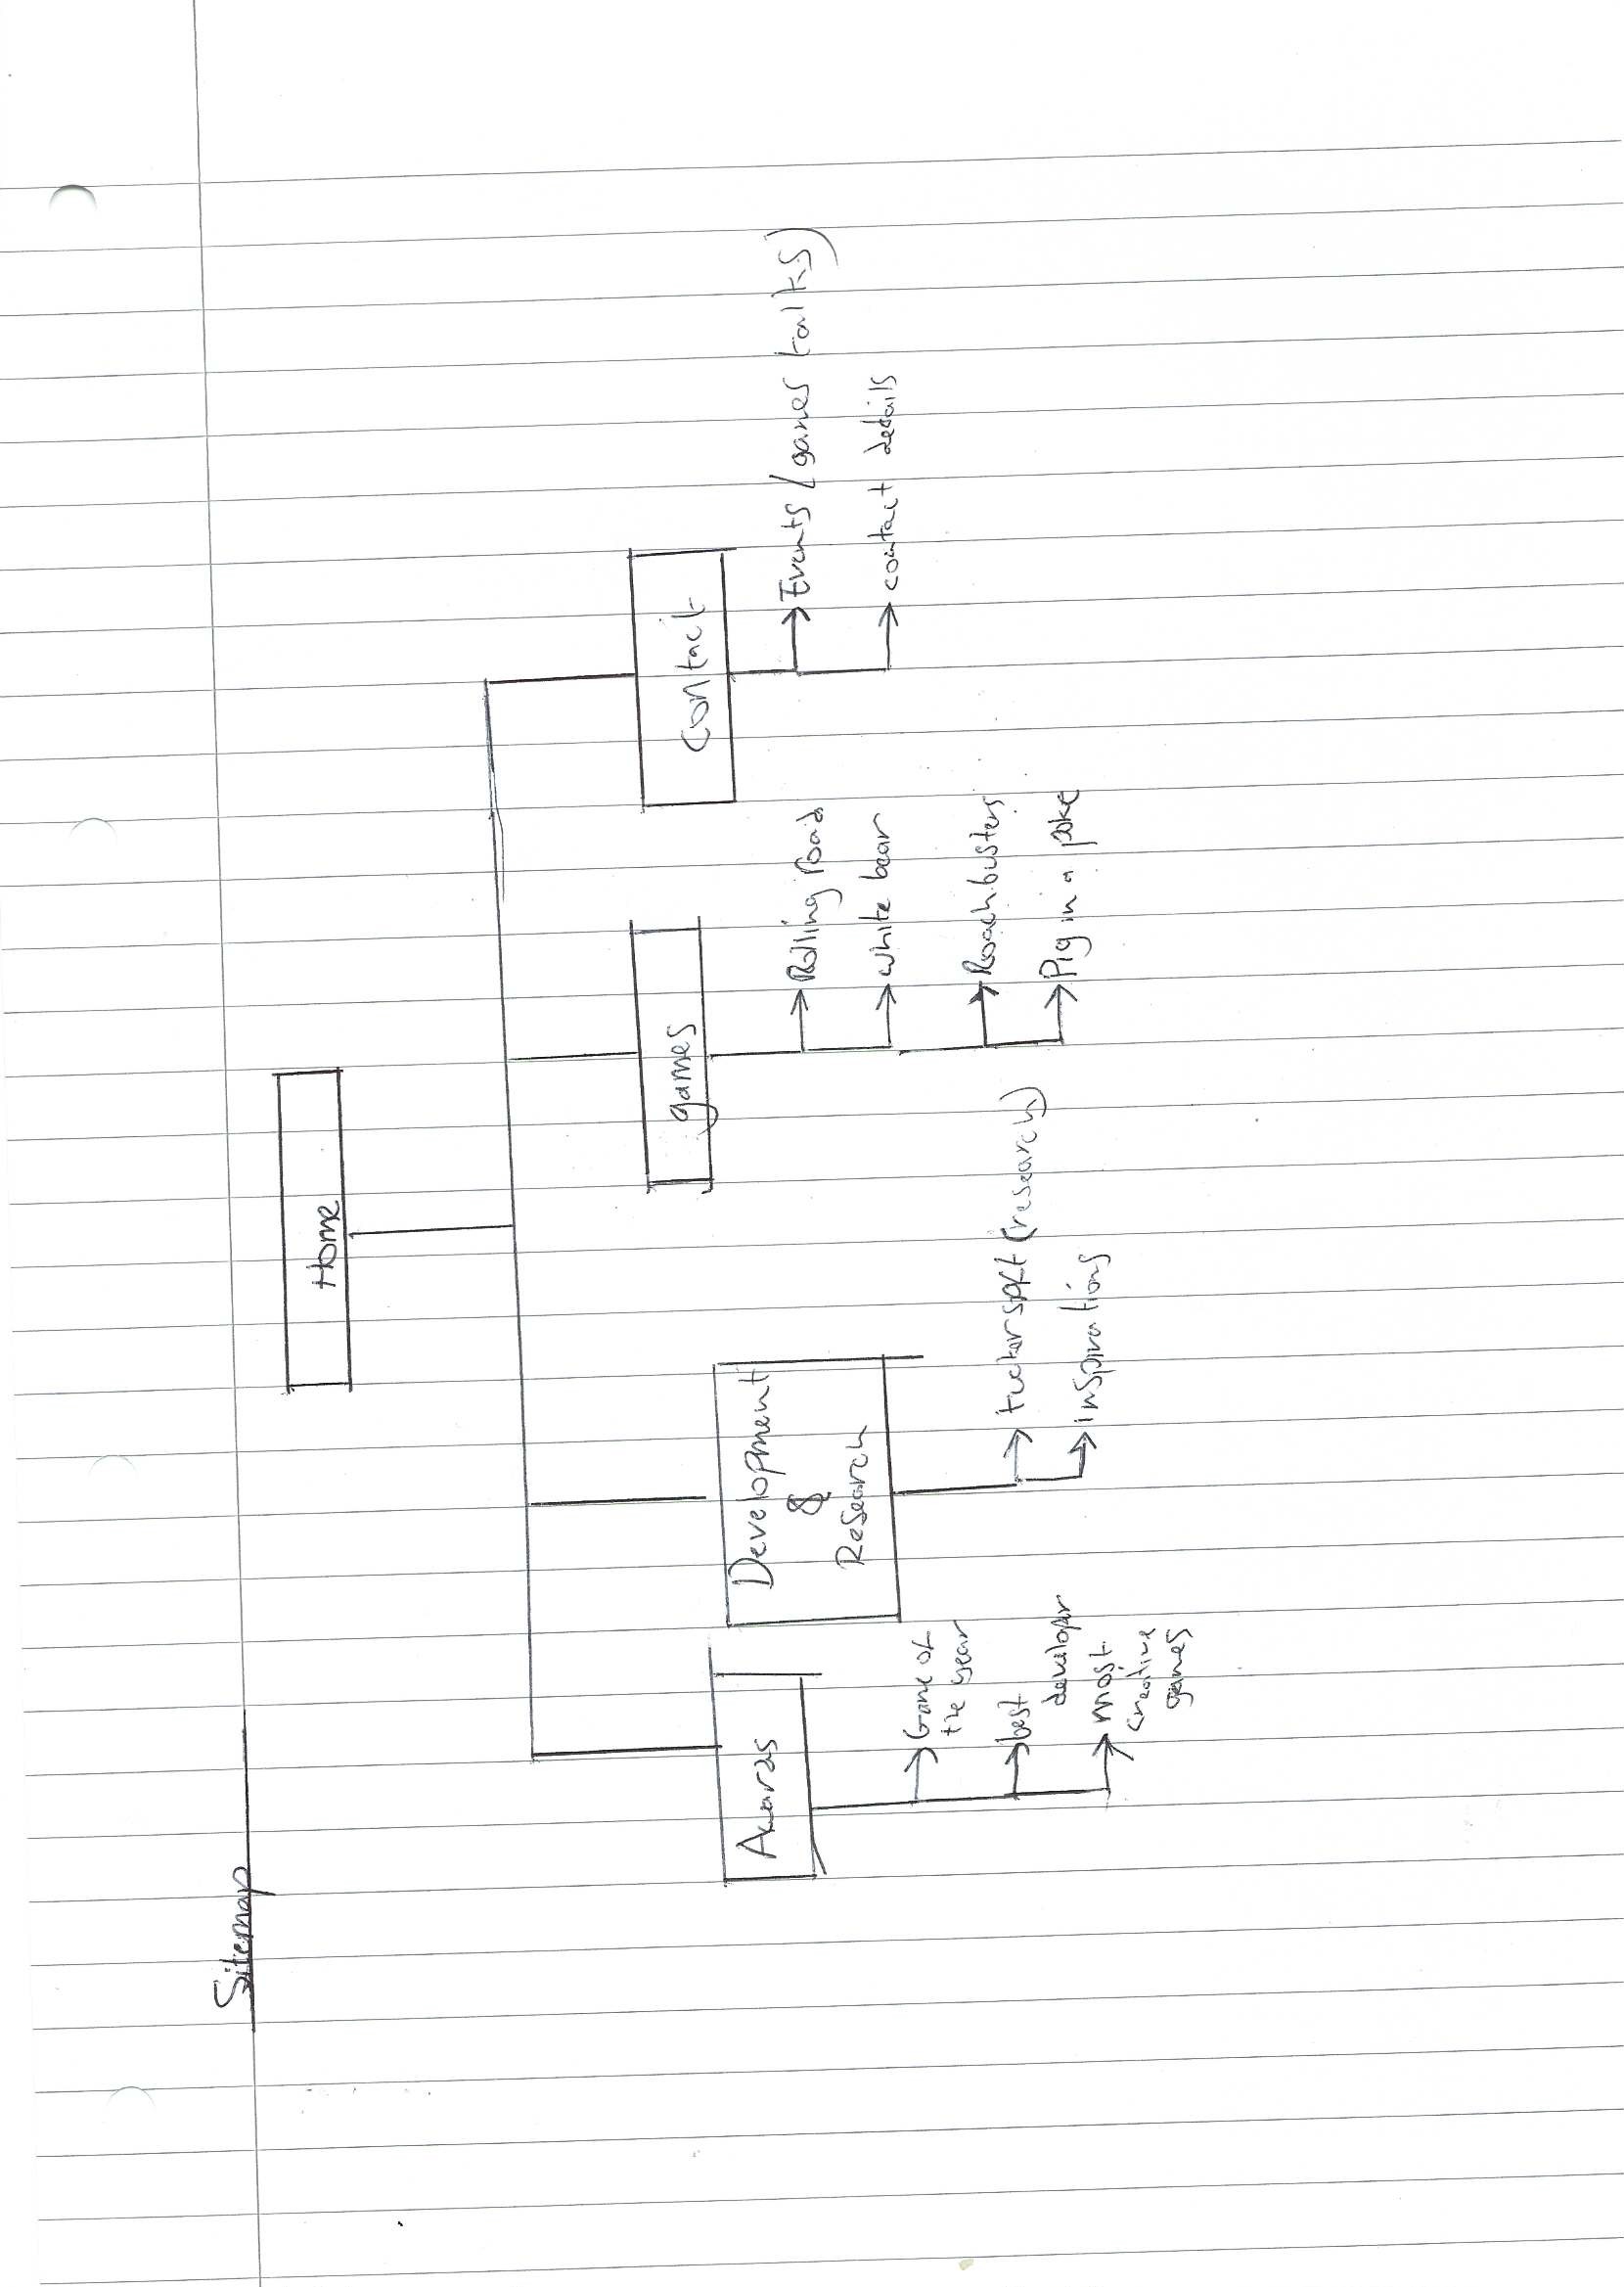 Sitemap
Home
Awards
Game of
the year
best
developer
most
creative
games
Development
&
Research
tuckersoft (research)
inspirations
games
Rolling road
white bear
Roachbusters
Pig in a poke
Contact
Events (games talks)
contact details